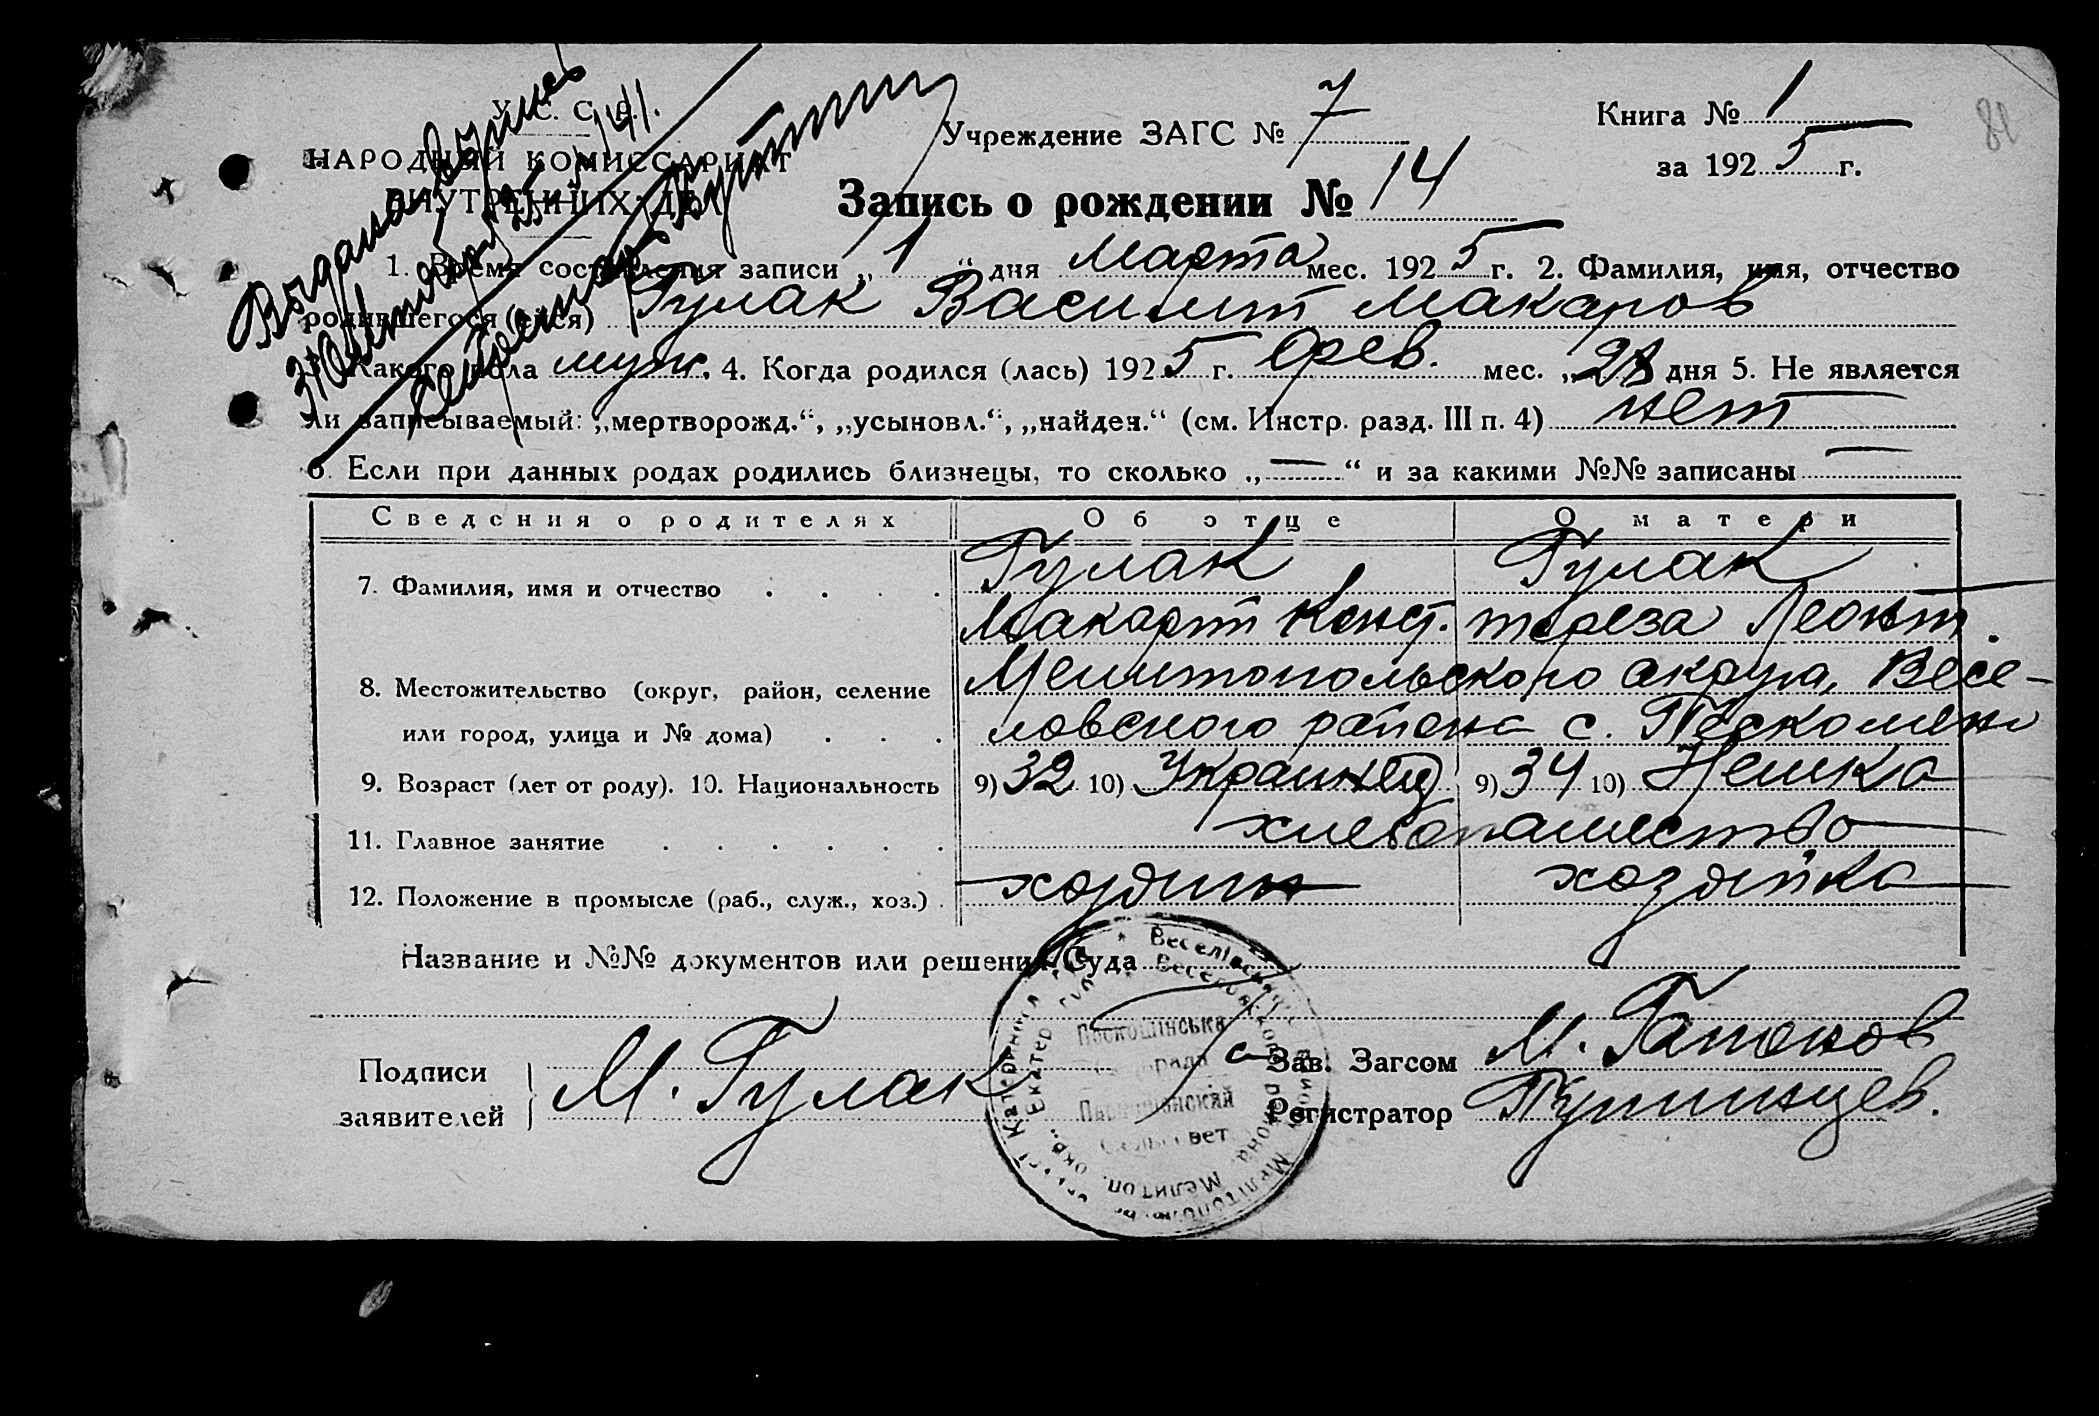 У. С. С. Р.
НАРОДНЫЙ КОМИССАРИАТ
ВНУТРЕННИХ ДЕЛ
Выдана выпись
Учреждение ЗАГС № 7
Книга № 1
за 1925 г.
82
Запись о рождении № 14
1. Время составления записи „1“ дня Марта мес. 1925 г. 2. Фамилия, имя, отчество
родившегося (ейся) Гулак Василит Макаров
3. Какого пола муж. 4. Когда родился (лась) 1925 г. Фев. мес. „28 дня 5. Не является
ли записываемый: „мертворожд.“, „усыновл.“, „найден.“ (см. Инстр. разд. III п. 4) нет
6. Если при данных родах родились близнецы, то сколько „—“ и за какими №№ записаны —
Сведения о родителях Об отце О матери
7. Фамилия, имя и отчество Гулак Гулак
Макарт Конст. тереза Леонт.
8. Местожительство (округ, район, селение Мелитопольского округа, Весе-
или город, улица и № дома) ловского района с.
9. Возраст (лет от роду). 10. Национальность 9) 32 10) Украинец 9) 34 10) Немка
11. Главное занятие хлебопашество
12. Положение в промысле (раб., служ., хоз.) хозяин хозяйка
Название и №№ документов или решения Суда
Подписи
заявителей М. Гулак
Зав. Загсом М. Гапонов
Регистратор